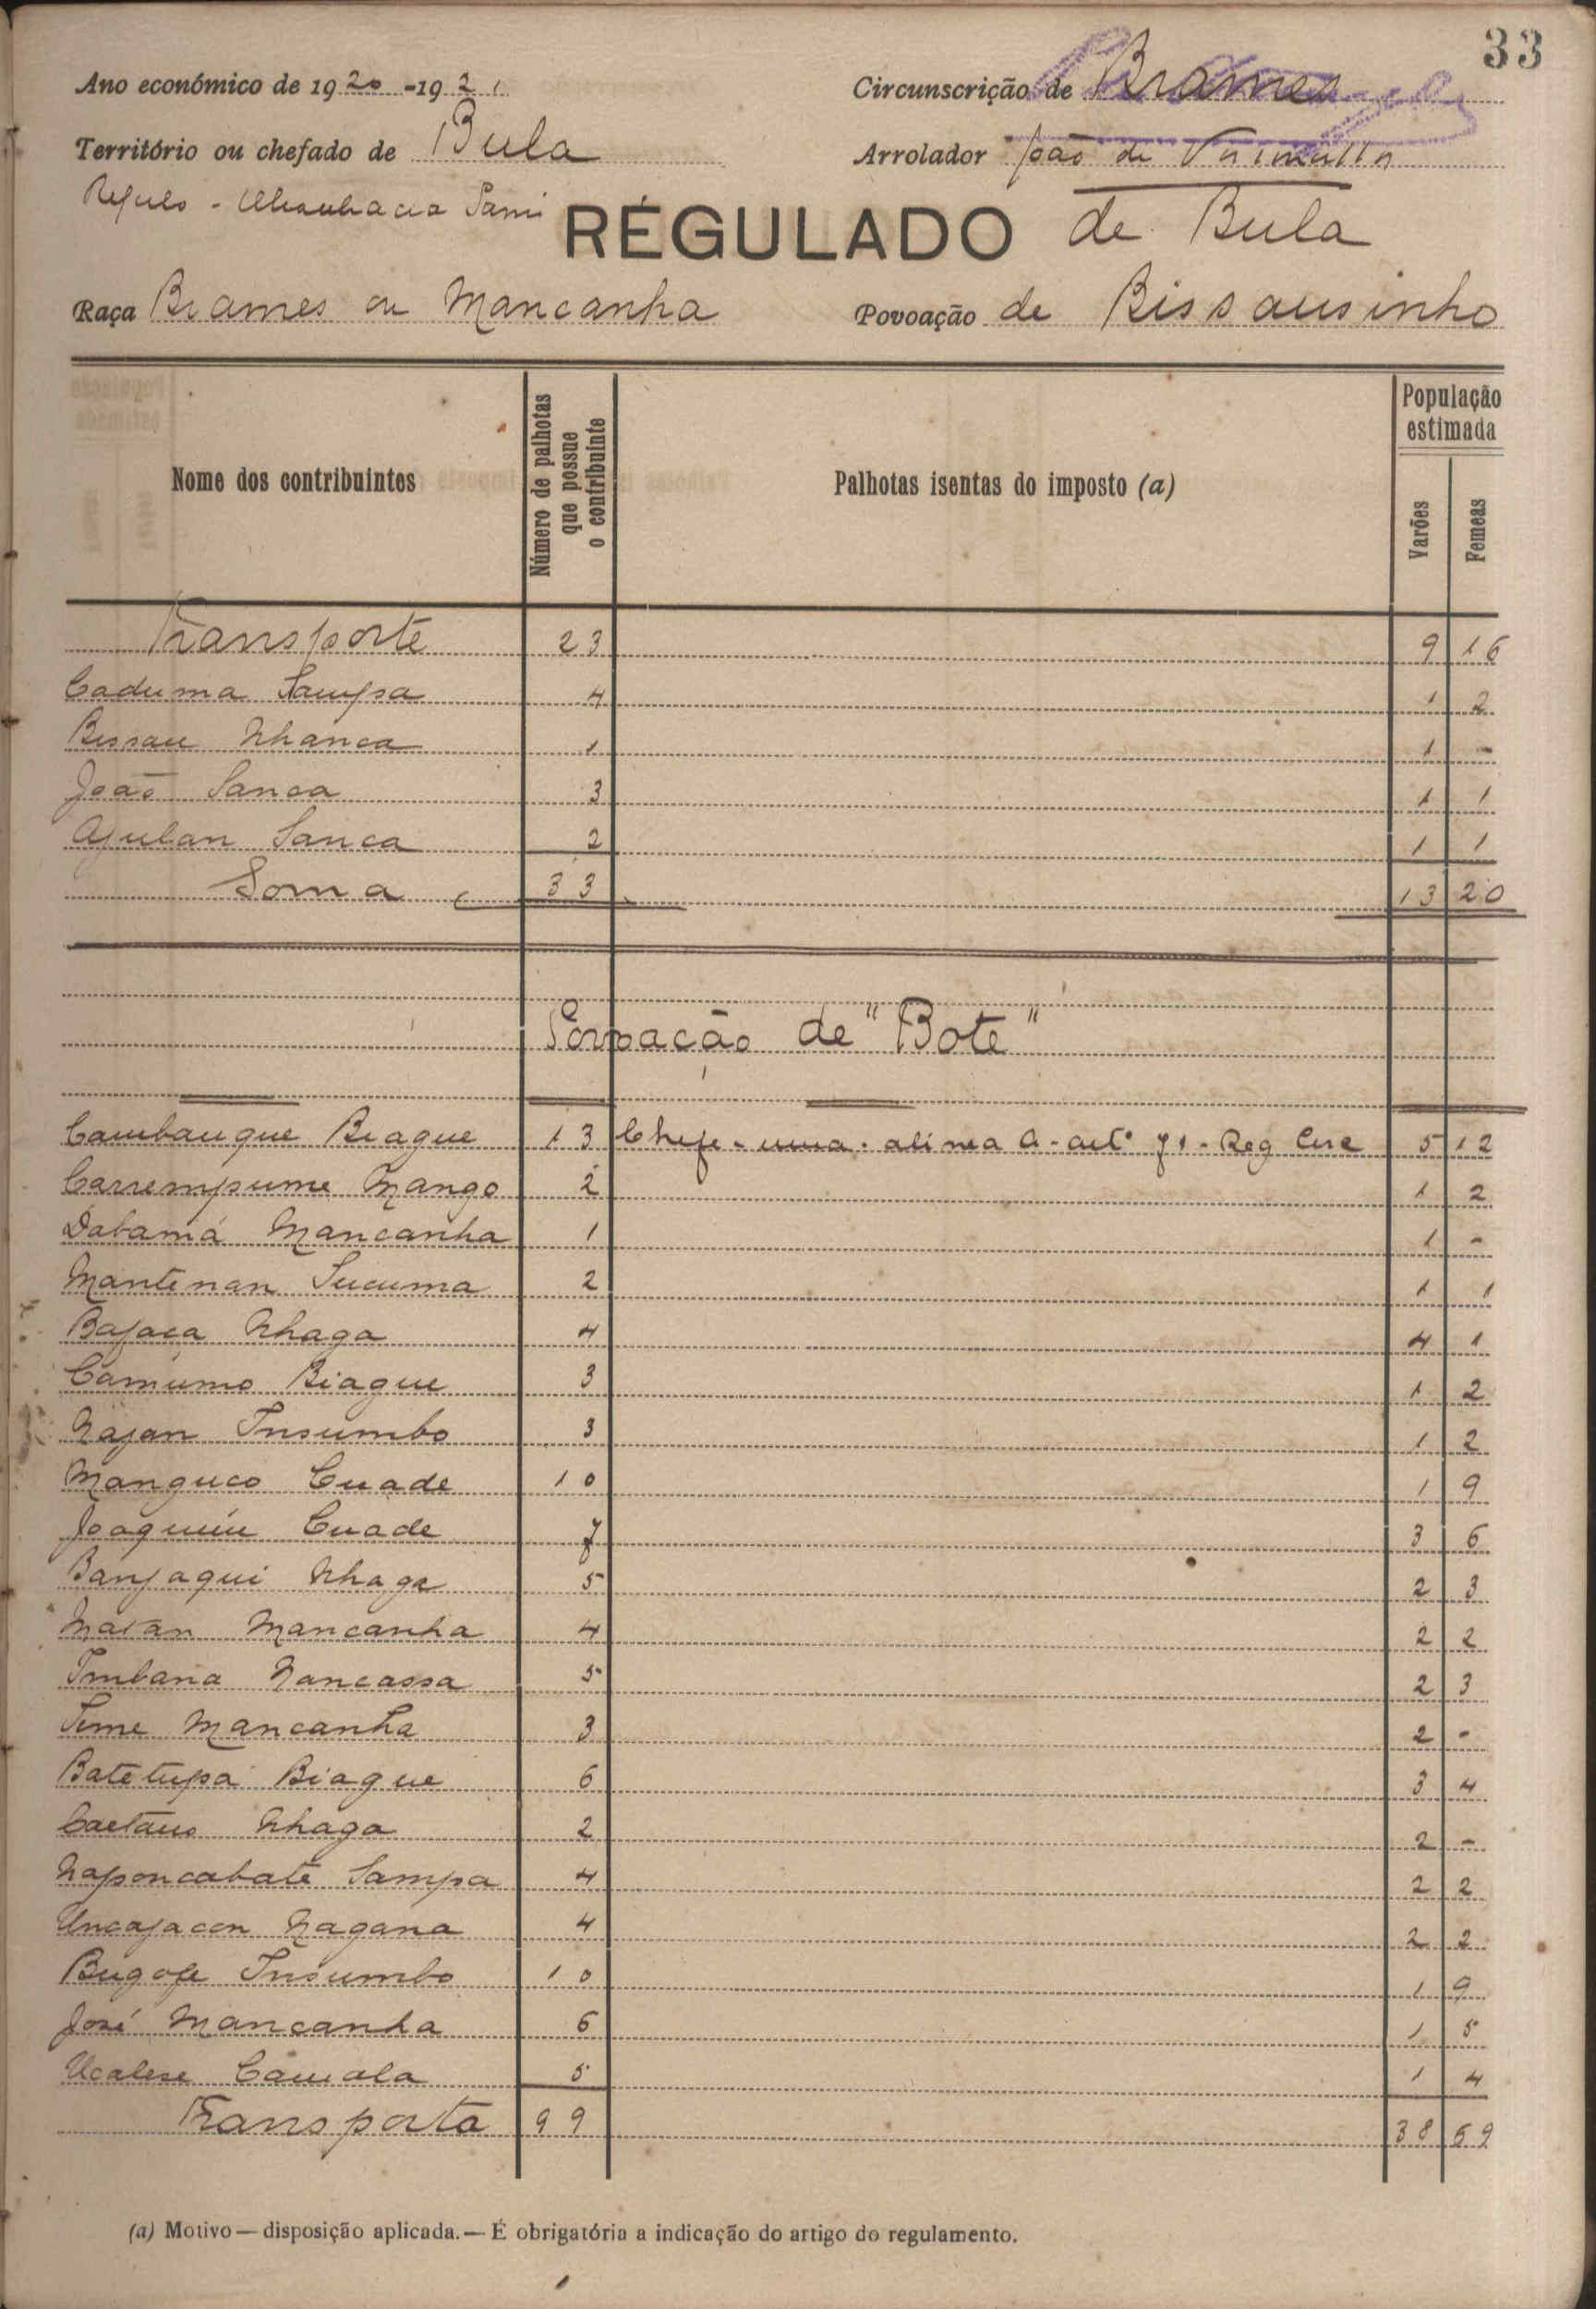 33
Ano económico de 1920-1921 Circunscrição de Brames
Território ou chefado de Bula Arrolador João de
Regulo - REGULADO de Bula
Raça Brames ou Mancanha Povoação de Bissausinho
Nome dos contribuintes Número de palhotas que possue o contribuinte Palhotas isentas do imposto (a) População estimada Varões Femeas
Transporte 23 9 16
Caduma Sampa 4 1 2
Bissau Nhanca 1 1 -
João Sanca 3 1 1
Ajulan Sanca 2 1 1
Soma 33 13 20
Povoação de "Bote"
Cambanque Biague 13 Chefe - uma. alinea A - artº 71 - Reg Circ 5 12
Carrempume Mango 2 1 2
Dabamá Mancanha 1 1 -
Mantenan Sucuma 2 1 1
Bajaca Nhaga 4 4 1
Camumo Biague 3 1 2
Najan Insumbo 3 1 2
Manguco Cuade 10 1 9
Joaquim Cuade 7 3 6
Banjaqui Nhaga 5 2 3
Natan Mancanha 4 2 2
Imbana Nancassa 5 2 3
Seme Mancanha 3 2 -
Batetupa Biague 6 3 4
Caetano Nhaga 2 2 -
Naponcabate Sampa 4 2 2
Uncajacon Nagana 4 2 2
Bugofe Insumbo 10 1 9
José Mancanha 6 1 5
Ucalese Camala 5 1 4
Transporta 99 38 69
(a) Motivo — disposição aplicada. — É obrigatória a indicação do artigo do regulamento.